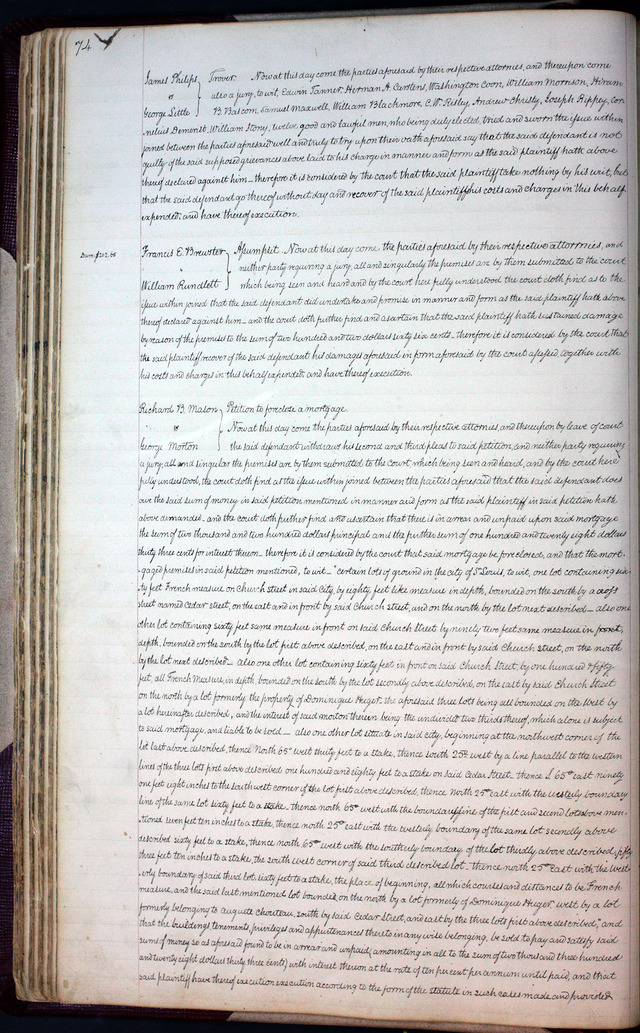 74
James Philips } Trover. Now at this day come the parties aforesaid by their respective attornies, and thereupon come
vs also a jury, to wit, Edwin Tanner, Herman A. Carstens, Washington Coon, William Morrison, Hiram
George Little B. Bascom, Samuel Maxwell, William Blackmore, C. W. Risley, Andrew Christy, Joseph Rippey, Cor
nelius Demorst, William Story, twelve good and lawful men, who being duly elected, tried and sworn the issue within
joined between the parties aforesaid well and truly to try upon their oath aforesaid say that the said defendant is not
guilty of the said supposed grievances above laid to his charge in manner and form as the said plaintiff hath above
thereof declared against him — therefore it is considered by the court that the said plaintiff take nothing by his writ, but
that the said defendant go thereof without day and recover of the said plaintiff his costs and charges in this behalf
expended, and have thereof execution.
Dam. $202.66
Francis E. Brewster } Assumpsit. Now at this day come the parties aforesaid by their respective attornies, and
neither party requiring a jury, all and singularly the premises are by them submitted to the court
William Rundlett which being seen and heard and by the court here fully understood the court doth find as to the
issue within joined that the said defendant did undertake and promise in manner and form as the said plaintiff hath above
thereof declared against him — and the court doth further find and asartain that the said plaintiff hath sustained damage
by reason of the premises to the sum of two hundred and two dollars sixty six cents. therefore it is considered by the court that
the said plaintiff recover of the said defendant his damages aforesaid in form aforesaid by the court assessed together with
his costs and charges in this behalf expended, and have thereof execution.
Richard B. Mason } Petition to foreclose a mortgage.
vs Now at this day come the parties aforesaid by their respective attornies and thereupon by leave of court
George Morton the said defendant withdraws his second and third pleas to said petition, and neither party requiring
a jury, all and singular the premises are by them submitted to the court, which being seen and heard, and by the court here
fully understood, the court doth find as the issue within joined between the parties aforesaid that the said defendant does
owe the said sum of money in said petition mentioned in manner and form as the said plaintiff in said petition hath
above demanded — and the court doth further find and asartain that there is in arrear and unpaid upon said mortgage
the sum of two thousand and two hundred dollars principal and the further sum of one hundred and twenty eight dollars
thirty three cents for interest thereon — therefore it is considered by the court that said mortgage be foreclosed, and that the mort
gaged premises in said petition mentioned, to wit — "certain lots of ground in the city of St Louis, to wit, one lot containing six
ty feet French measure on Church street in said City, by eighty feet like measure in depth, bounded on the south by a cross
street named Cedar street, on the east and in front by said Church street, and on the north by the lot next described — also one
other lot containing sixty feet same measure in front on said Church street by ninety two feet same measure in
depth, bounded on the south by the lot first above described, on the east and in front by said Church street, on the north
by the lot next described — also one other lot containing sixty feet in front on said Church street, by one hundred & fifty
feet, all French Measure, in depth, bounded on the south by the lot secondly above described, on the east by said Church Street
on the north by a lot formerly the property of Dominique Huger, the aforesaid three lots being all bounded on the West by
a lot hereinafter described, and the interest of said morton therein being the undivided two thirds thereof, which alone is subject
to said mortgage, and liable to be sold — also one other lot situate in said city, beginning at the northwest corner of the
lot last above described, thence North 65° west thirty feet to a stake, thence south 25° west by a line parallel to the western
lines of the three lots first above described one hundred and eighty feet to a stake on said Cedar Street — thence S 65° east ninety
one feet eight inches to the south west corner of the lot first above described, thence north 25° east with the westerly boundary
line of the same lot sixty feet to a stake — thence north 65° west with the boundary line of the first and second lots above men
tioned seven feet ten inches to a stake, thence north 25° east with the westerly boundary of the same lot secondly above
described sixty feet to a stake, thence north 65° west with the southerly boundary of the lot thirdly above described, fifty
three feet ten inches to a stake, the south west corner of said third described lot — thence north 25° East with the West
erly boundary of said third lot sixty feet to a stake, the place of beginning, all which courses and distances to be French
measure, and the said last mentioned lot bounded, on the north by a lot formerly of Dominique Huger, west by a lot
formerly belonging to auguste chouteau, south by said Cedar Street, and east by the three lots first above described," and
that the buildings, tenements, privileges and appurtenances thereto in any wise belonging, be sold to pay and satisfy said
sums of money so as aforesaid found to be in arrear and unpaid, amounting in all to the sum of two thousand three hundred
and twenty eight dollars thirty three cents, with interest thereon at the rate of ten per cent per annum until paid, and that
said plaintiff have thereof execution execution according to the form of the statute in such cases made and provided